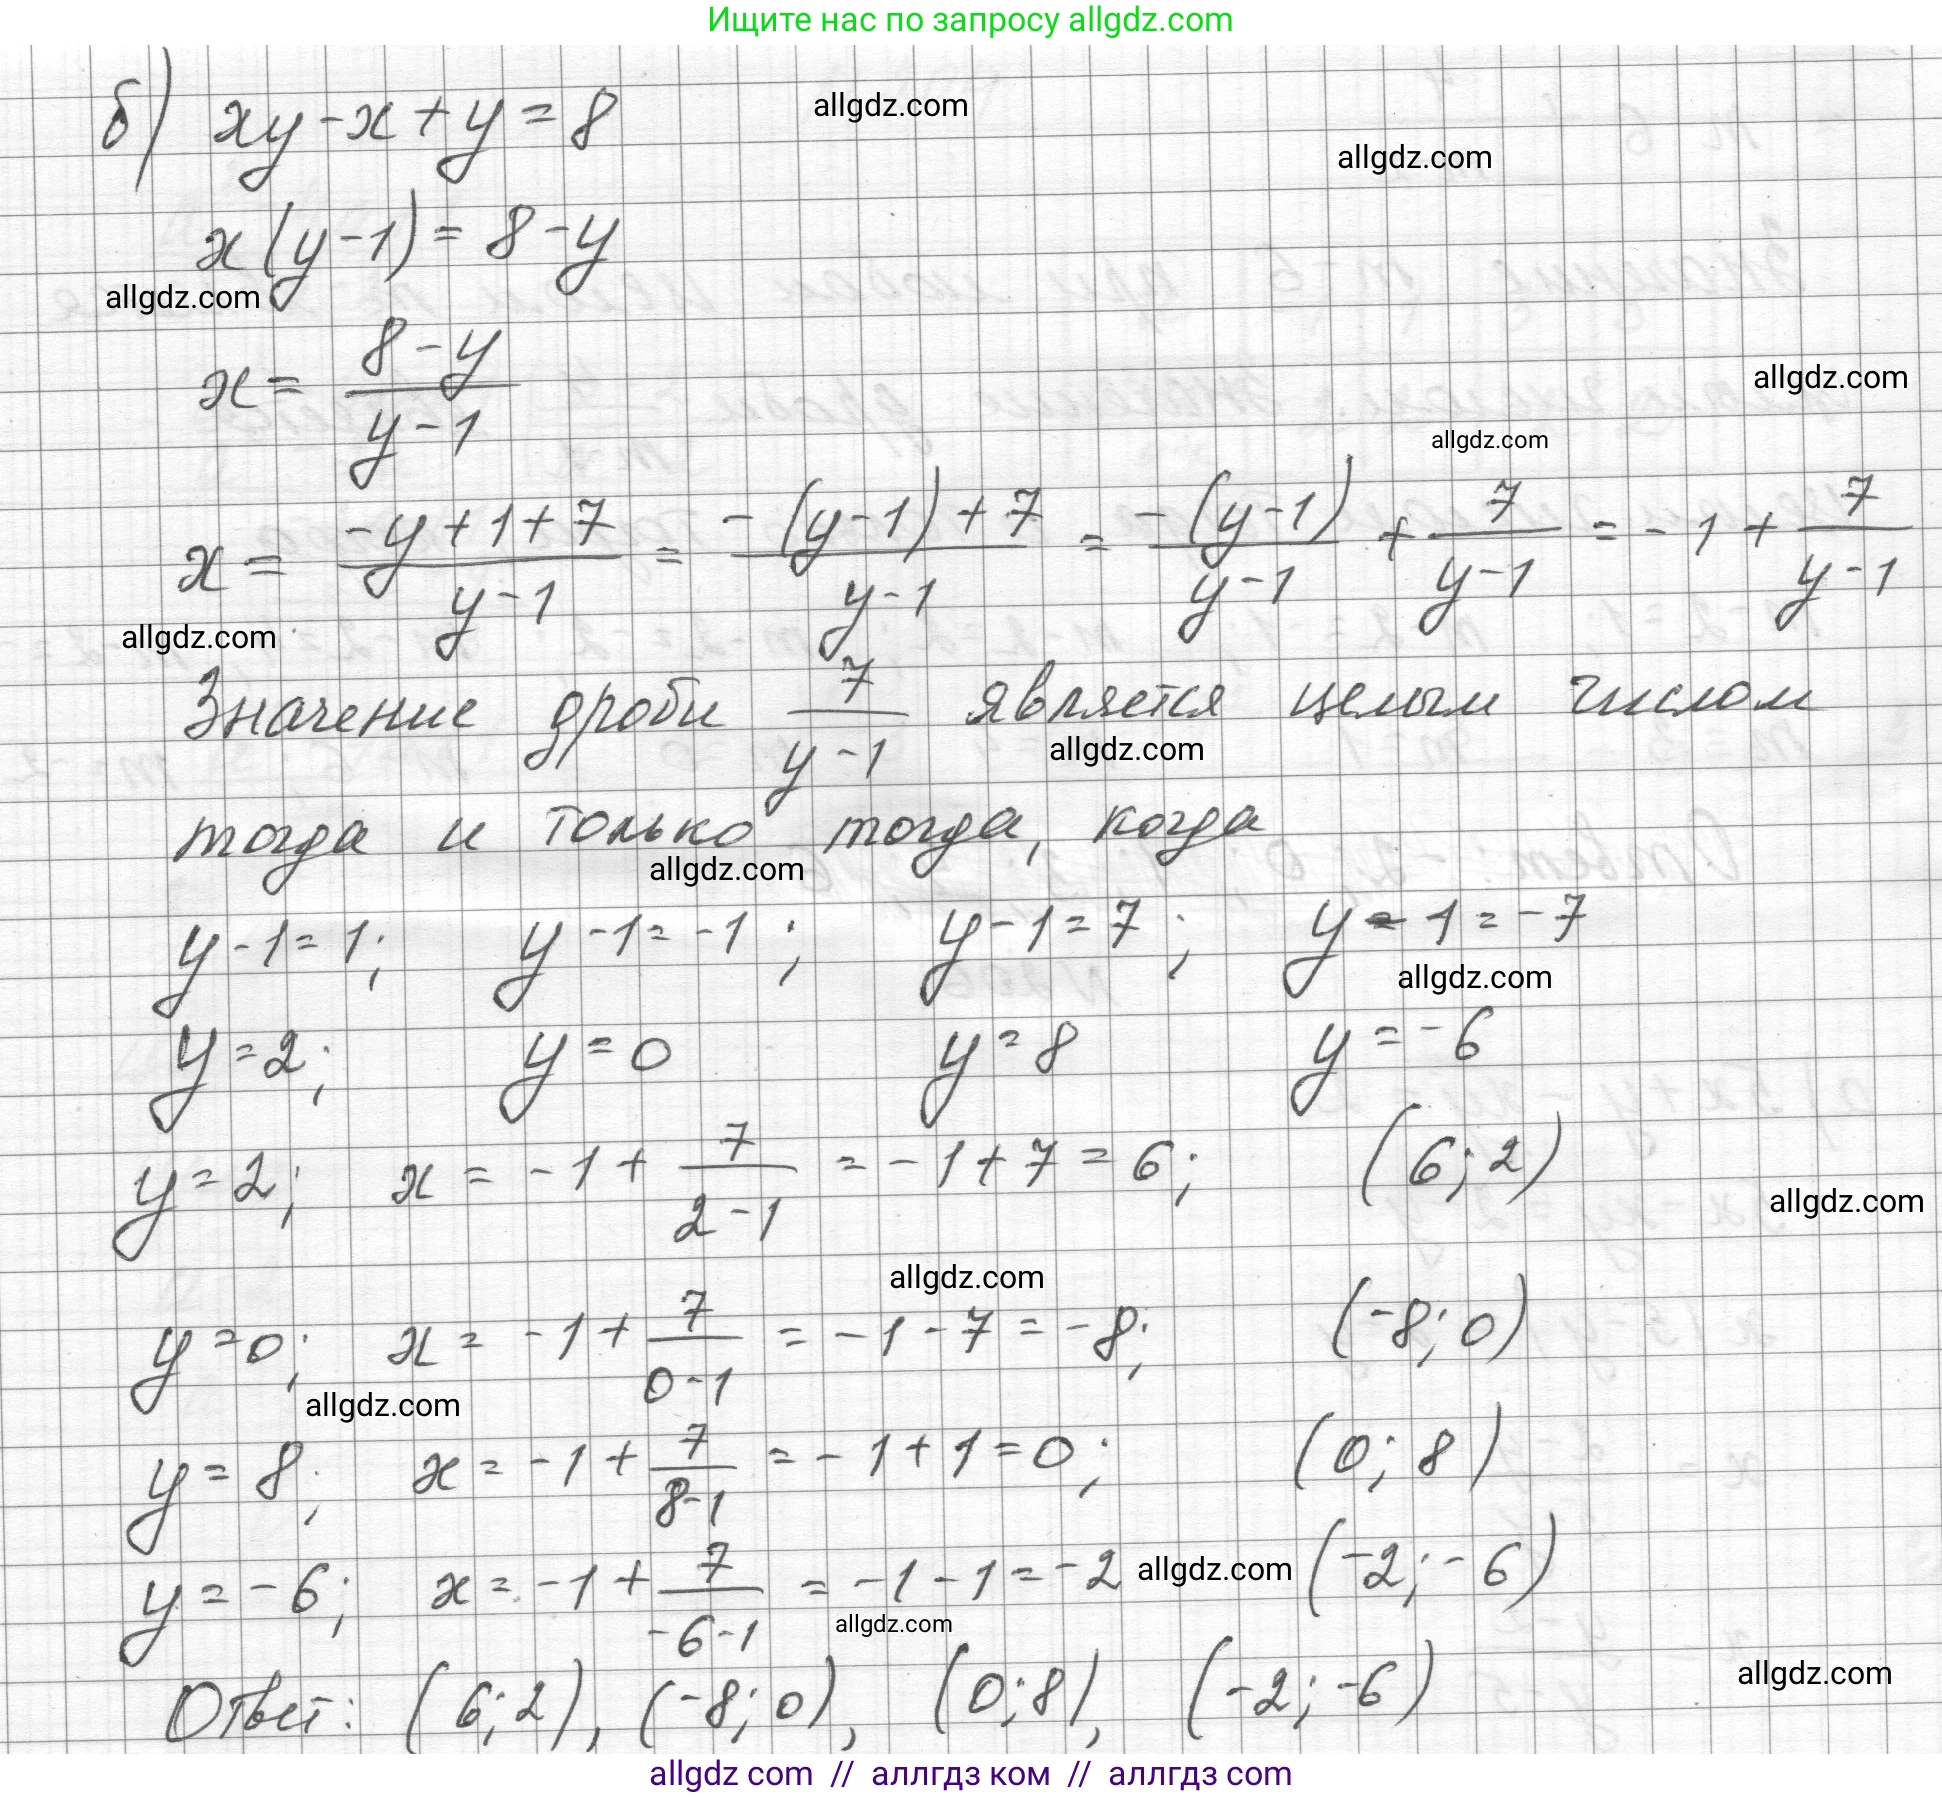 Ищите нас по запросу allgdz.com
б) xy - x + y = 8
allgdz.com
allgdz.com
x(y-1) = 8-y
allgdz.com
x = \frac{8-y}{y-1}
allgdz.com
allgdz.com
x = \frac{-y+1+7}{y-1} = \frac{-(y-1)+7}{y-1} = \frac{-(y-1)}{y-1} + \frac{7}{y-1} = -1 + \frac{7}{y-1}
allgdz.com
Значение дроби \frac{7}{y-1} является целым числом
allgdz.com
тогда и только тогда, когда
allgdz.com
y-1=1; y-1=-1; y-1=7; y-1=-7
allgdz.com
y=2; y=0 y=8 y=-6
y=2; x = -1 + \frac{7}{2-1} = -1+7=6; (6; 2)
allgdz.com
allgdz.com
y=0; x = -1 + \frac{7}{0-1} = -1-7=-8; (-8; 0)
allgdz.com
y=8; x = -1 + \frac{7}{8-1} = -1+1=0; (0; 8)
y=-6; x = -1 + \frac{7}{-6-1} = -1-1=-2 allgdz.com (-2; -6)
allgdz.com
Ответ: (6; 2), (-8; 0), (0; 8), (-2; -6)
allgdz.com
allgdz com // аллгдз ком // аллгдз com